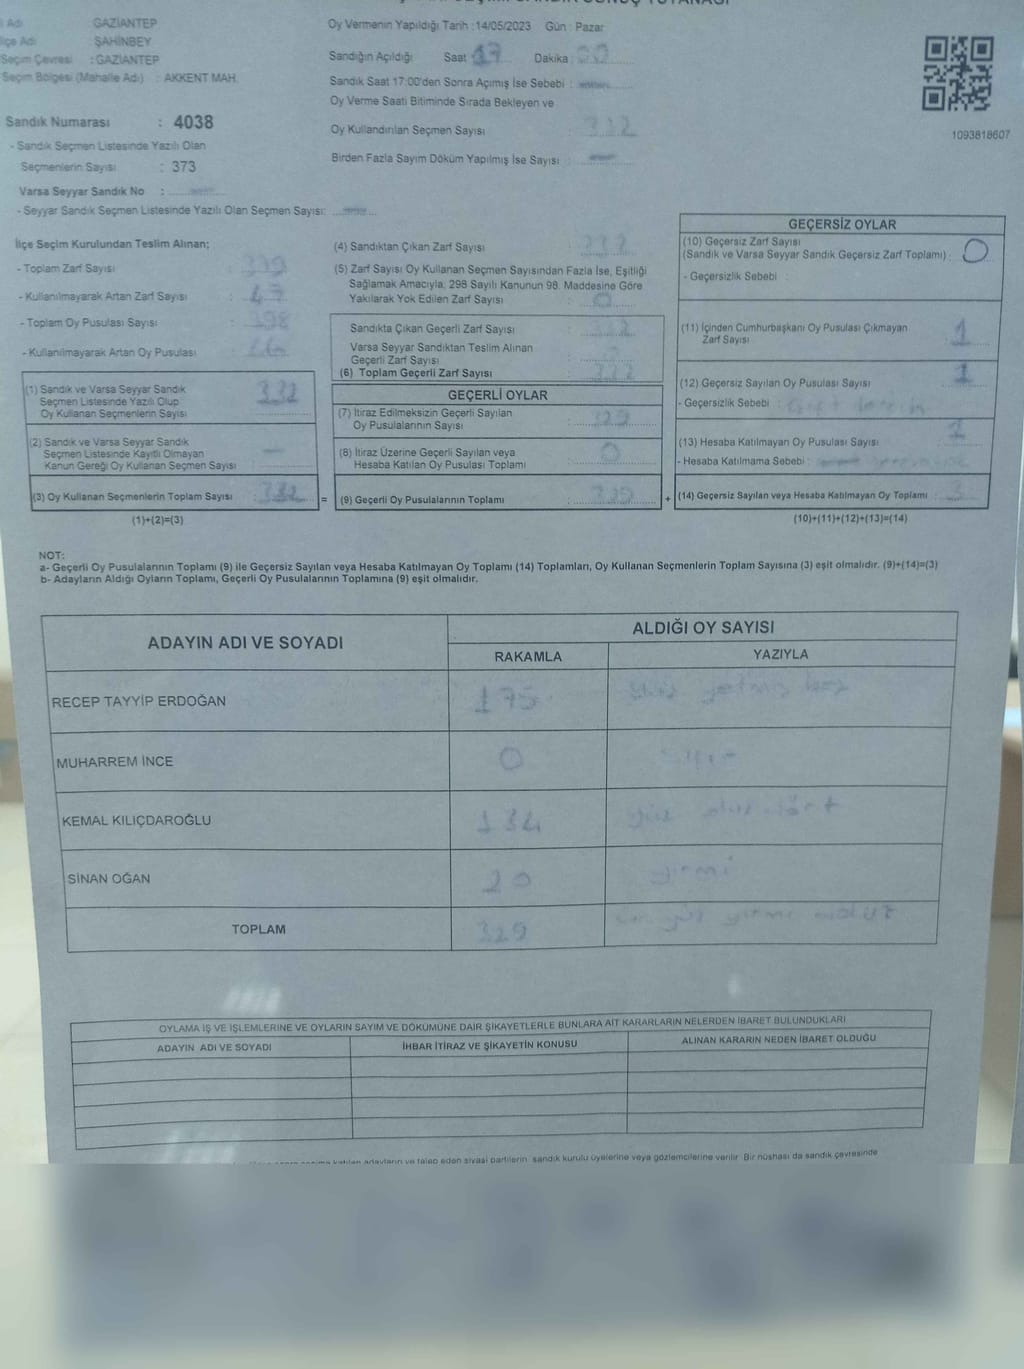 GAZİANTEP
ŞAHİNBEY
Seçim Çevresi : GAZİANTEP
Seçim Bölgesi (Mahalle Adı) : AKKENT MAH.
Sandık Numarası : 4038
- Sandık Seçmen Listesinde Yazılı Olan
Seçmenlerin Sayısı : 373
Varsa Seyyar Sandık No :
- Seyyar Sandık Seçmen Listesinde Yazılı Olan Seçmen Sayısı:
Oy Vermenin Yapıldığı Tarih : 14/05/2023 Gün : Pazar
Sandığın Açıldığı Saat 17 Dakika
Sandık Saat 17:00'den Sonra Açımış İse Sebebi :
Oy Verme Saati Bitiminde Sırada Bekleyen ve
Oy Kullandırılan Seçmen Sayısı :
Birden Fazla Sayım Döküm Yapılmış İse Sayısı :
1093818607
İlçe Seçim Kurulundan Teslim Alınan;
- Toplam Zarf Sayısı :
- Kullanılmayarak Artan Zarf Sayısı :
- Toplam Oy Pusulası Sayısı : 398
- Kullanılmayarak Artan Oy Pusulası :
(1) Sandık ve Varsa Seyyar Sandık
Seçmen Listesinde Yazılı Olup
Oy Kullanan Seçmenlerin Sayısı : 332
(2) Sandık ve Varsa Seyyar Sandık
Seçmen Listesinde Kayıtlı Olmayan
Kanun Gereği Oy Kullanan Seçmen Sayısı :
(3) Oy Kullanan Seçmenlerin Toplam Sayısı : 332 =
(1)+(2)=(3)
(4) Sandıktan Çıkan Zarf Sayısı :
(5) Zarf Sayısı Oy Kullanan Seçmen Sayısından Fazla İse, Eşitliği
Sağlamak Amacıyla, 298 Sayılı Kanunun 98. Maddesine Göre
Yakılarak Yok Edilen Zarf Sayısı : 0
Sandıkta Çıkan Geçerli Zarf Sayısı :
Varsa Seyyar Sandıktan Teslim Alınan
Geçerli Zarf Sayısı :
(6) Toplam Geçerli Zarf Sayısı :
GEÇERLİ OYLAR
(7) İtiraz Edilmeksizin Geçerli Sayılan
Oy Pusulalarının Sayısı : 329
(8) İtiraz Üzerine Geçerli Sayılan veya
Hesaba Katılan Oy Pusulası Toplamı : 0
(9) Geçerli Oy Pusulalarının Toplamı : 329 +
GEÇERSİZ OYLAR
(10) Geçersiz Zarf Sayısı
(Sandık ve Varsa Seyyar Sandık Geçersiz Zarf Toplamı) : 0
- Geçersizlik Sebebi :
(11) İçinden Cumhurbaşkanı Oy Pusulası Çıkmayan
Zarf Sayısı : 1
(12) Geçersiz Sayılan Oy Pusulası Sayısı : 1
- Geçersizlik Sebebi :
(13) Hesaba Katılmayan Oy Pusulası Sayısı : 1
- Hesaba Katılmama Sebebi :
(14) Geçersiz Sayılan veya Hesaba Katılmayan Oy Toplamı : 3
(10)+(11)+(12)+(13)=(14)
NOT:
a- Geçerli Oy Pusulalarının Toplamı (9) ile Geçersiz Sayılan veya Hesaba Katılmayan Oy Toplamı (14) Toplamları, Oy Kullanan Seçmenlerin Toplam Sayısına (3) eşit olmalıdır. (9)+(14)=(3)
b- Adayların Aldığı Oyların Toplamı, Geçerli Oy Pusulalarının Toplamına (9) eşit olmalıdır.
ADAYIN ADI VE SOYADI
ALDIĞI OY SAYISI
RAKAMLA YAZIYLA
RECEP TAYYİP ERDOĞAN 175 yüz yetmiş beş
MUHARREM İNCE 0
KEMAL KILIÇDAROĞLU 134 yüz otuz dört
SİNAN OĞAN 20 yirmi
TOPLAM 329 üç yüz yirmi dokuz
OYLAMA İŞ VE İŞLEMLERİNE VE OYLARIN SAYIM VE DÖKÜMÜNE DAİR ŞİKAYETLERLE BUNLARA AİT KARARLARIN NELERDEN İBARET BULUNDUKLARI
ADAYIN ADI VE SOYADI İHBAR İTİRAZ VE ŞİKAYETİN KONUSU ALINAN KARARIN NEDEN İBARET OLDUĞU
katılan adayların ve talep eden siyasi partilerin sandık kurulu üyelerine veya gözlemcilerine verilir. Bir nüshası da sandık çevresinde